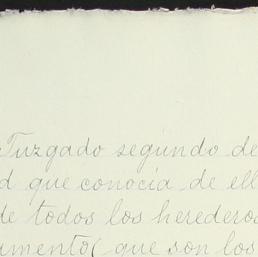 Juzgado segundo de
d que conocía de ell
de todos los heredero
umento( que son los